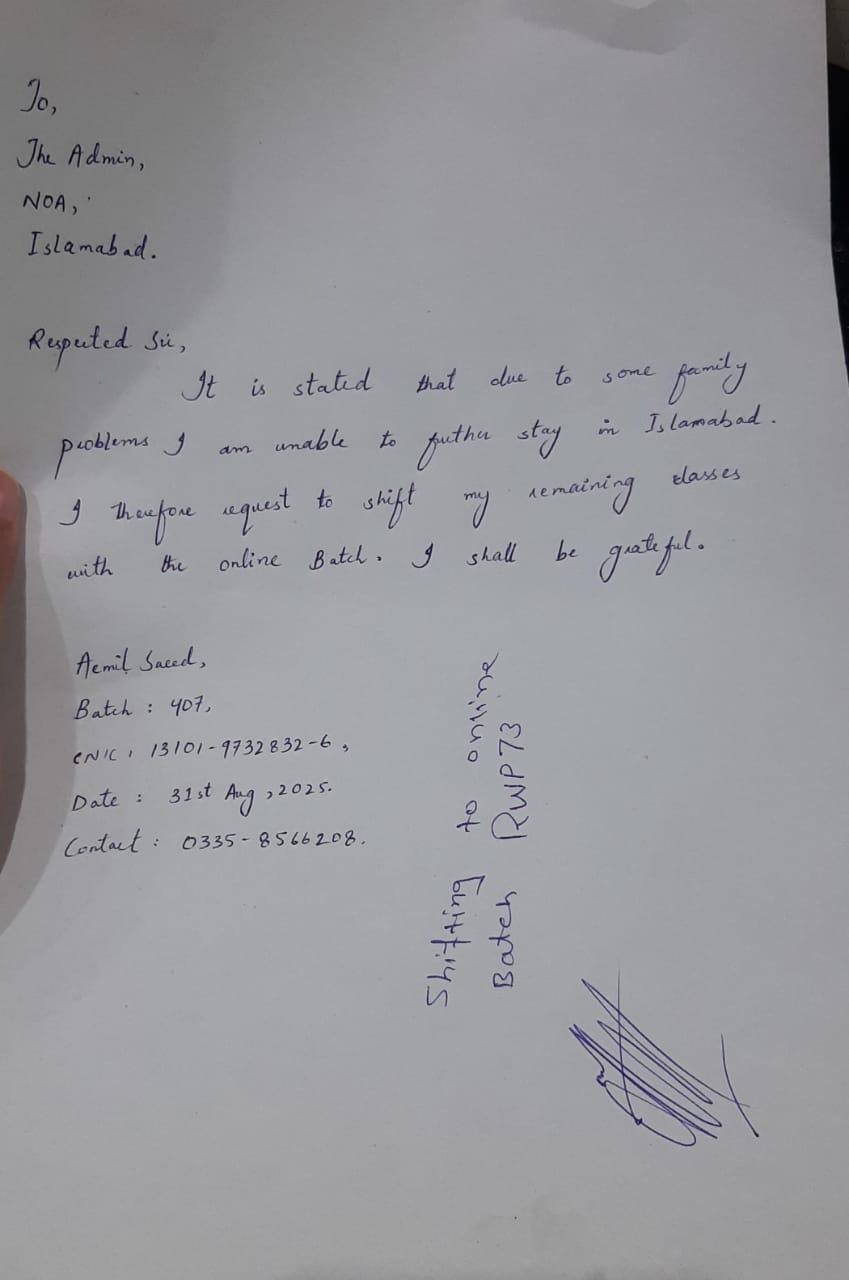 To,
The Admin,
NOA,
Islamabad.
Respected Sir,
It is stated that due to some family
problems I am unable to futher stay in Islamabad.
I therefore request to shift my remaining classes
with the online Batch. I shall be grateful.
Aemil Saeed,
Batch : 407,
CNIC : 13101-9732832-6,
Date : 31st Aug, 2025.
Contact : 0335-8566208.
Shifting to online
Batch RWP73